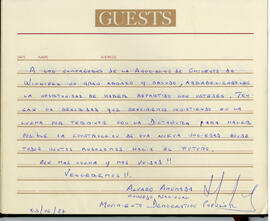 GUESTS
DATE NAME ADDRESS
A LOS COMPAÑEROS DE LA ASOCIACION DE CHILENOS DE
WINNIPEG UN GRAN ABRAZO Y SALUDO, AGRADECIENDOLES
LA OPORTUNIDAD DE HABER DEPARTIDO CON USTEDES. TEN-
GAN LA SEGURIDAD QUE SEGUIREMOS INSISTIENDO EN LA
LUCHA POR TERMINAR CON LA DICTADURA PARA HACER
POSIBLE LA CONSTRUCCION DE UNA NUEVA SOCIEDAD DONDE
TODOS JUNTOS AVANCEMOS HACIA EL FUTURO.
CON MAS LUCHA Y MAS UNIDAD!!
VENCEREMOS!!
ALVARO AHUMADA
CONSEJO NACIONAL
MOVIMIENTO DEMOCRATICO POPULAR